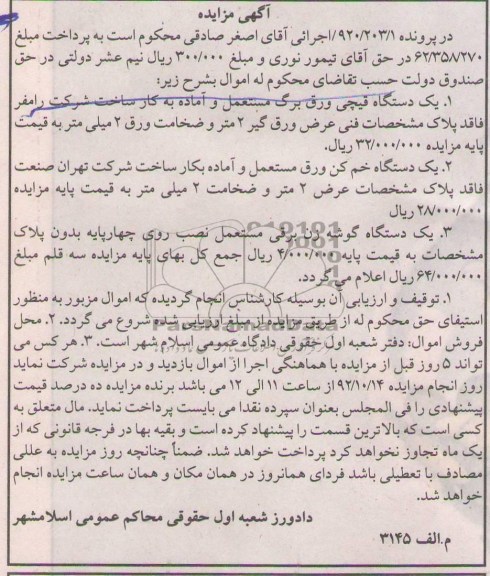 آگهی مزایده
در پرونده ۹۲۰/۲۰۳/۱/اجرائی آقای اصغر صادقی محکوم است به پرداخت مبلغ
۶۲/۳۵۸/۲۷۰ در حق آقای تیمور نوری و مبلغ ۳۰۰/۰۰۰ ریال نیم عشر دولتی در حق
صندوق دولت حسب تقاضای محکوم له اموال بشرح زیر:
۱. یک دستگاه قیچی ورق برگ مستعمل و آماده به کار ساخت شرکت رامفر
فاقد پلاک مشخصات فنی عرض ورق گیر ۲ متر و ضخامت ورق ۲ میلی متر به قیمت
پایه مزایده ۳۲/۰۰۰/۰۰۰ ریال.
۲. یک دستگاه خم کن ورق مستعمل و آماده بکار ساخت شرکت تهران صنعت
فاقد پلاک مشخصات عرض ۲ متر و ضخامت ۲ میلی متر به قیمت پایه مزایده
۲۸/۰۰۰/۰۰۰ ریال
۳. یک دستگاه گوشه زن برقی مستعمل نصب روی چهارپایه بدون پلاک
مشخصات به قیمت پایه ۴/۰۰۰/۰۰۰ ریال جمع کل بهای پایه مزایده سه قلم مبلغ
۶۴/۰۰۰/۰۰۰ ریال اعلام می گردد.
۱. توقیف و ارزیابی آن بوسیله کارشناس انجام گردیده که اموال مزبور به منظور
استیفای حق محکوم له از طریق مزایده از مبلغ ارزیابی شده شروع می گردد. ۲. محل
فروش اموال: دفتر شعبه اول حقوقی دادگاه عمومی اسلام شهر است. ۳. هر کس می
تواند ۵ روز قبل از مزایده با هماهنگی اجرا از اموال بازدید و در مزایده شرکت نماید
روز انجام مزایده ۹۲/۱۰/۱۴ از ساعت ۱۱ الی ۱۲ می باشد برنده مزایده ده درصد قیمت
پیشنهادی را فی المجلس بعنوان سپرده نقدا می بایست پرداخت نماید. مال متعلق به
کسی است که بالاترین قسمت را پیشنهاد کرده است و بقیه بها در فرجه قانونی که از
یک ماه تجاوز نخواهد کرد پرداخت خواهد شد. ضمناً چنانچه روز مزایده به عللی
مصادف با تعطیلی باشد فردای همانروز در همان مکان و همان ساعت مزایده انجام
خواهد شد.
دادورز شعبه اول حقوقی محاکم عمومی اسلامشهر
م.الف ۳۱۴۵